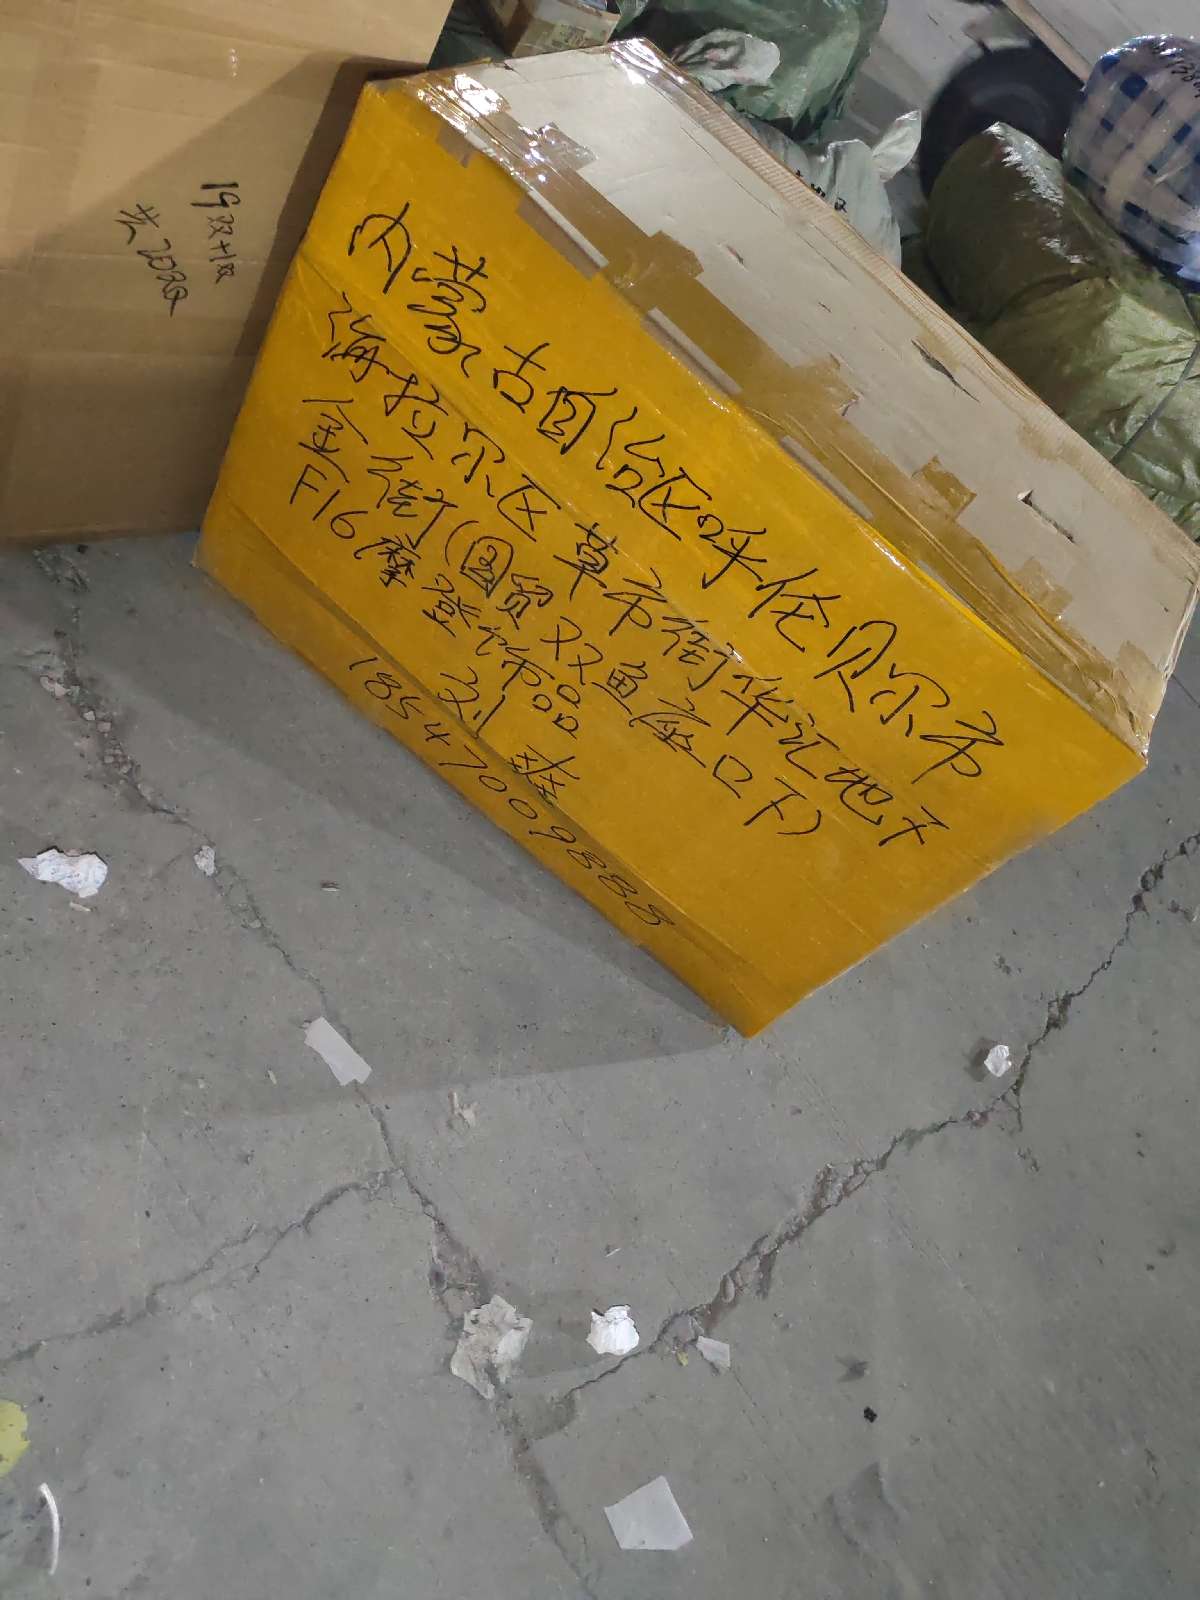 内蒙古自治区呼伦贝尔市
海拉尔区草市街华汇地下
金街(国贸双鱼座口下)
F16摩登饰品
刘爽
18547009888
19双+1双